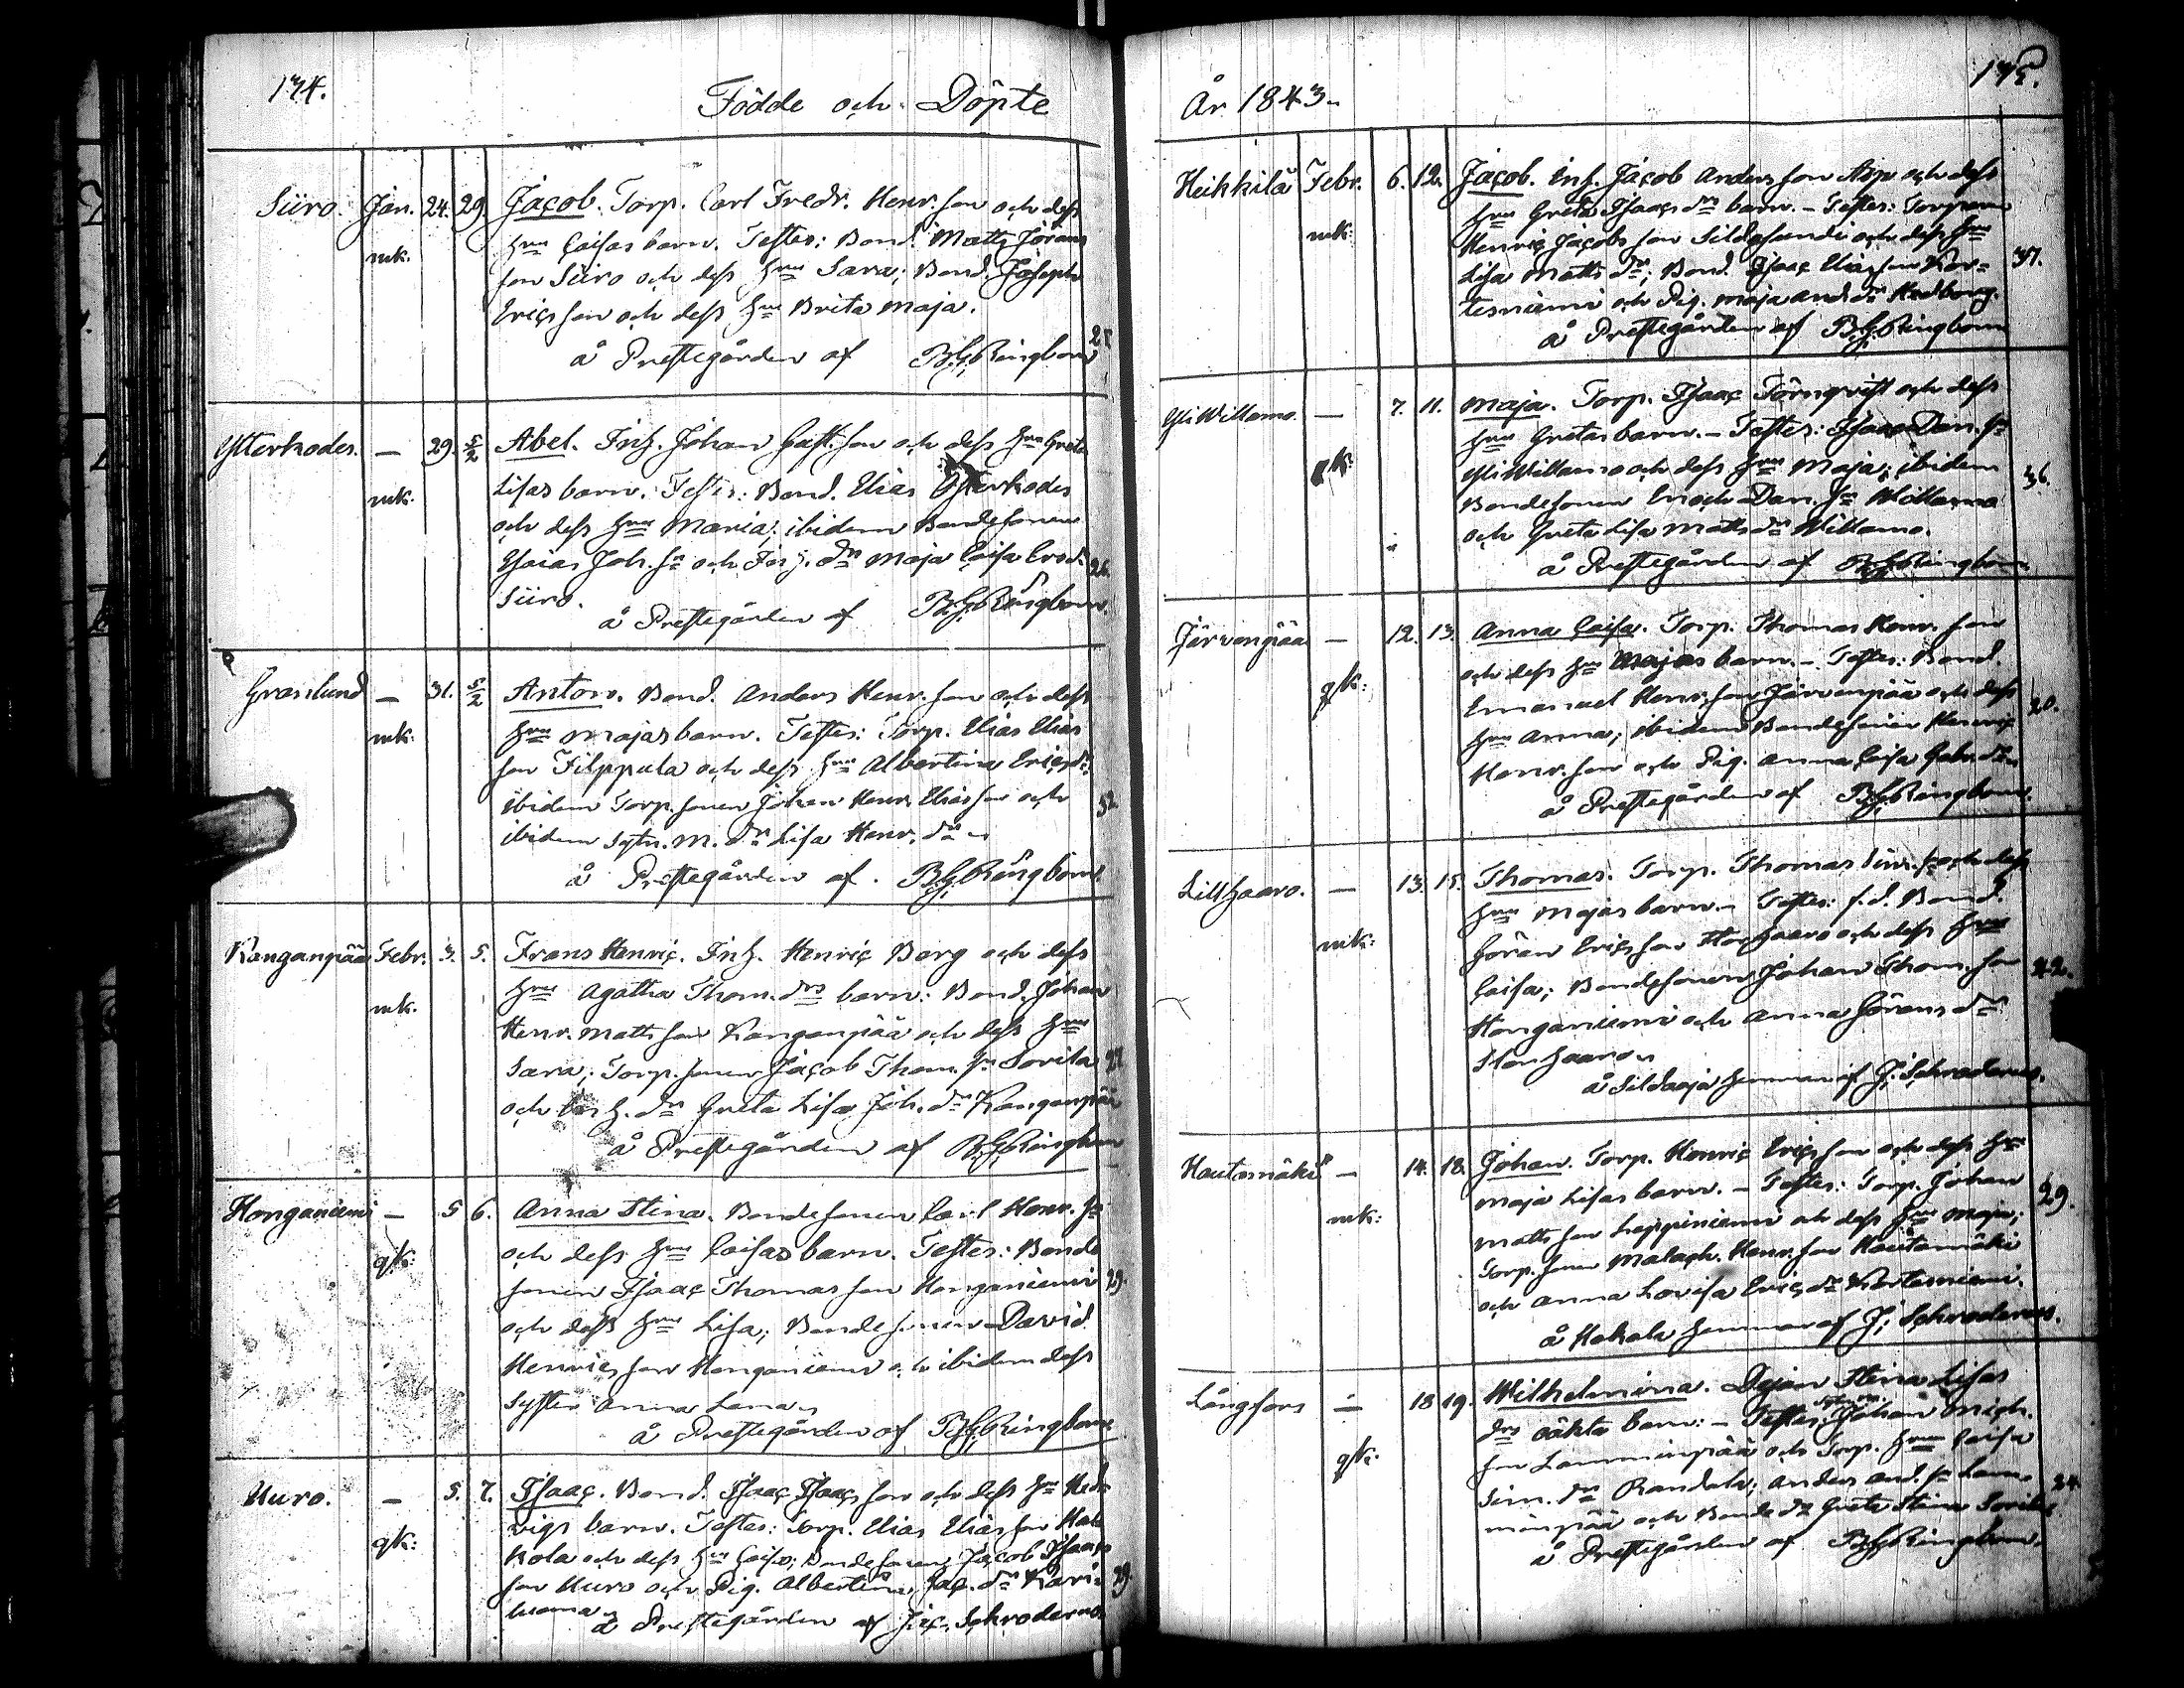 174.
Födde och Döpte
Siiro. Jan. 24. 29. Jacob. Torp. Carl Fredr. Henr. son och dess
mk. hru Caisas barn. Testes: Bond. Matts Görans
son Siiro och dess hru Sara; Bond. Joseph
Erics son och dess hru Brita Maja.
25.
å Prestegården af B.G. Ringbom
Ytterkodes. — 29. 5/2 Abel. Inh. Johan Gust. son och dess hru Greta
mk. Lisas barn. Testes: Bond. Elias Ytterkodes
och dess hru Maria; ibidem Bondesonen
Esaias Joh. sn och Inh. dr Maja Caisa
26.
Siiro.
å Prestegården af B.G. Ringbom.
Granlund — 31. 5/2 Anton. Bond. Anders Henr. son och dess
mk. hru Majas barn. Testes: Torp. Elias Elias
son Filppula och dess hru Albertina Erics dr;
ibidem Torp. sonen Johan Henr. Elias son och
52
ibidem Sytn. M. dr Lisa Henr. dr
å Prestegården af B.G. Ringbom.
Kanganpää Febr. 3. 5. Frans Henric. Inh. Henric Berg och dess
mk. hru Agatha Thom. drs barn: Bond. Johan
Henr. Matts son Kanganpää och dess hru
Sara; Torp. sonen Jacob Thom. sn Sorila
och Inh. dr Greta Lisa Joh. dr Kanganpää
å Prestegården af B.G. Ringbom
Honganiemi — 5 6. Anna Stina. Bondesonen Carl Henr. sn
qk: och dess hru Caisas barn. Testes: Bonde
sonen Isaac Thomas son Honganiemi
29.
och dess hru Lisa; Bondesonen David
Henrics son Honganiemi och ibidem dess
Syster Anna Lena.
å Prestegården af B.G. Ringbom.
Uuro. — 5. 7. Isaac. Bond. Isaac Isaacs son och dess hru Hed-
qk: vigs barn. Testes: Torp. Elias Elias son Hak
kola och dess hru Caisa; Bondesonen Jacob Isaacs
son Uuro och Pig. Albertina Jac. dr Kari-
29.
luoma
å Prestegården af Jac. Schroderus
175.
År 1843.
Heikkilä Febr. 6. 12. Jacob. Inh. Jacob Anders son Asp och dess
mk: hru Greta Isaacs drs barn. — Testes: Torparen
Henric Jacobs son Sildesandi och dess hru
Lisa Matts dr; Bond. Isaac Elias son Kor-
37.
tesniemi och Pig. Maja And. dr Hedberg.
å Prestegården af B.G. Ringbom
Yli Willamo. — 7. 11. Maja. Torp. Isaac Törnqvist och dess
qk: hru Gretas barn. — Testes: Isaac Dan. sn
Yli Willamo och dess hru Maja; ibidem
36.
Bondesonen Enoch Dan. sn Willamo
och Greta Lisa Matts dr Willamo.
å Prestegården af B.G. Ringbom
Järvenpää — 12. 13. Anna Caisa. Torp. Thomas Henr. son
qk: och dess hru Majas barn. — Testes: Bond.
Emanuel Henr. son Järvenpää och dess
20.
hru Anna; ibidem Bondesonen Henric
Henr. son och Pig. Anna Caisa Gabr. dr
å Prestegården af B.G. Ringbom.
Lillhaaro. — 13. 15. Thomas. Torp. Thomas Sim. sn och dess
mk: hru Majas barn. — Testes: f.d. Bond.
Göran Erics son Storhaaro och dess hru
Caisa; Bondesonen Johan Thom. son
42.
Honganiemi och Anna Görans dr
Storhaaro.
å Sildaoja hemman af J. Schroderus.
Hautamäki — 14. 18. Johan. Torp. Henric Erics son och dess hru
mk: Maja Lisas barn. — Testes: Torp. Johan
29.
Matts son Leppiniemi och dess hru Maja;
Torp. sonen Malach. Henr. son Hautamäki
och Anna Lovisa Erics dr Kortesniemi.
å Hakala hemman af J. Schroderus.
Långfors — 18 19. Wilhelmina. Dejan Stina Lisas
qk: drs oäkta barn: — Testes: Johan Mich.
son Lamminpää och Torp. hru Caisa
Sim. dr Randala; Anders And. sn Lam-
24
minpää och Bonde dr Greta Stina Sorila
å Prestegården af B.G. Ringbom.